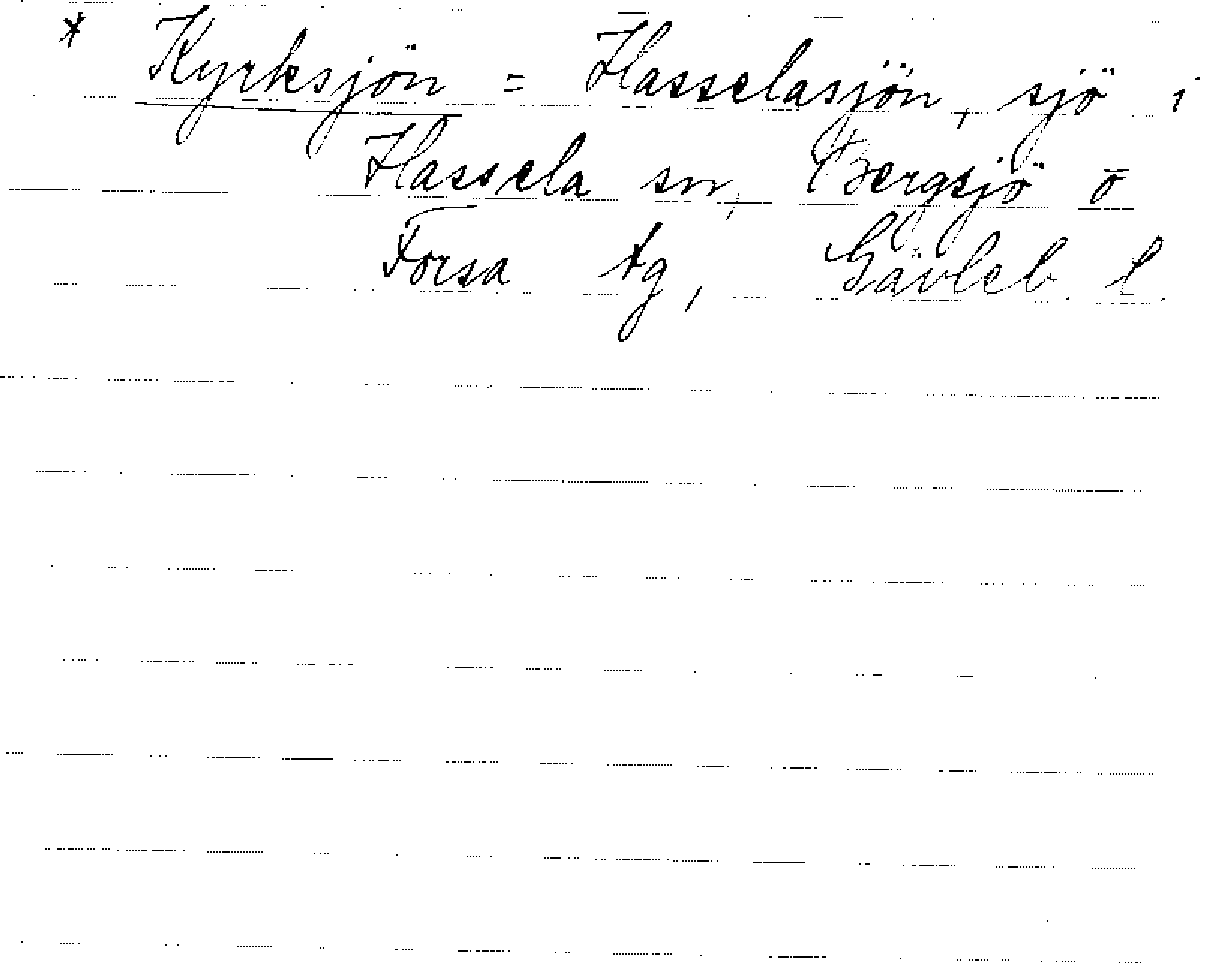 * Kyrksjön = Hasselasjön, sjö i
Hassela sn, Bergsjö o
Forsa tg, Gävleb. l.